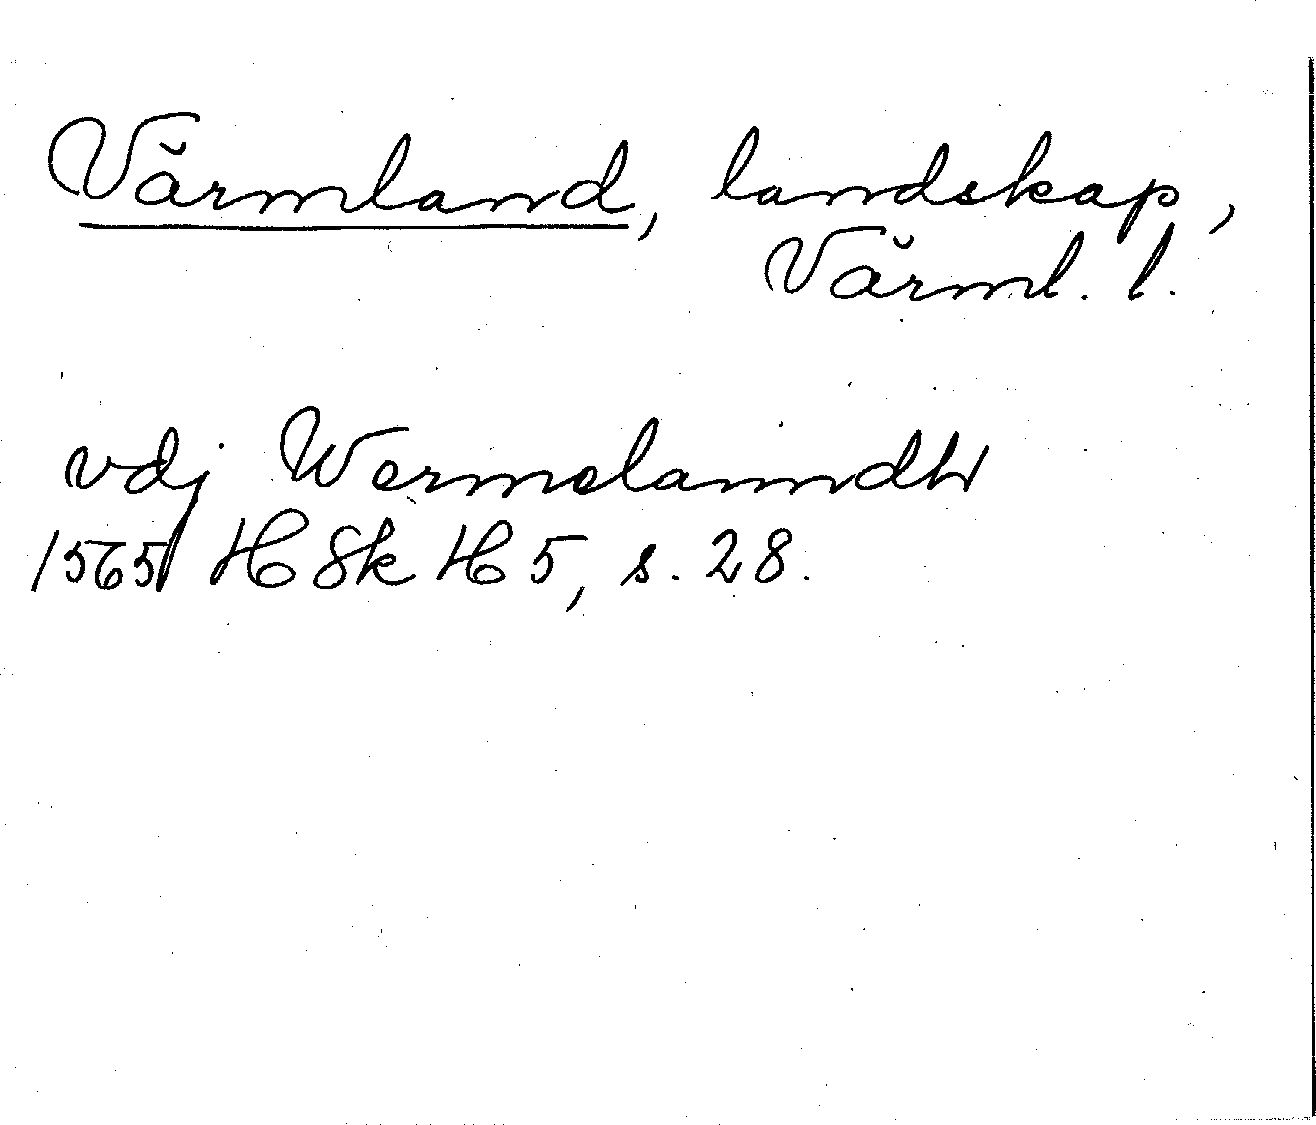 Värmland, landskap,
Värml. l.
vdj Wermelanndht
1565 HSk H 5, s. 28.